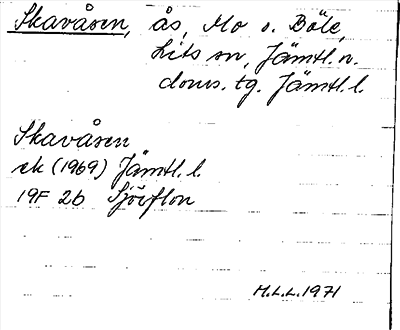 Skavåsen, ås, Mo o. Böle,
Lits sn, Jämtl. n.
doms. tg. Jämtl. l.
Skavåsen
ek (1969) Jämtl. l.
19F 2b Sjöuflon
M.L.L. 1971